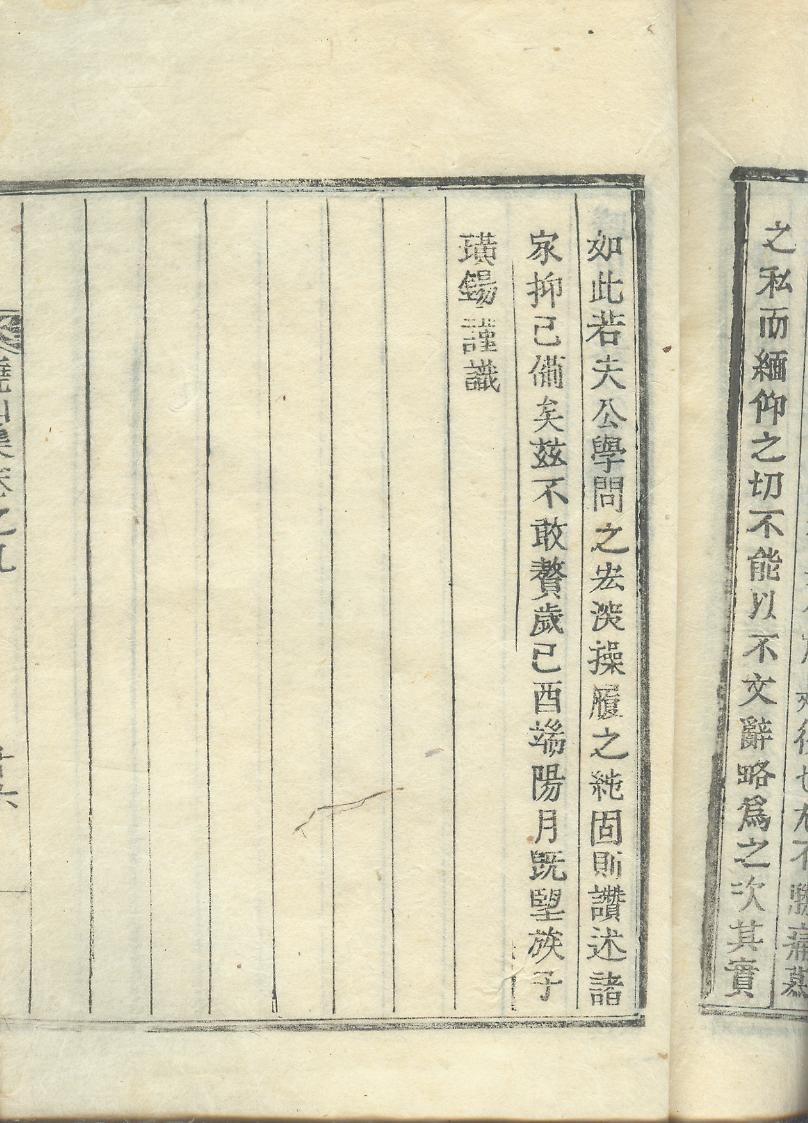 之私而緬仰之切不能以不文辭略爲之次其實
如此若夫公學問之宏深操履之純固則讚述諸
家抑已備矣玆不敢贅歲己酉端陽月旣望族子
璜錫謹識
集卷之九
十六